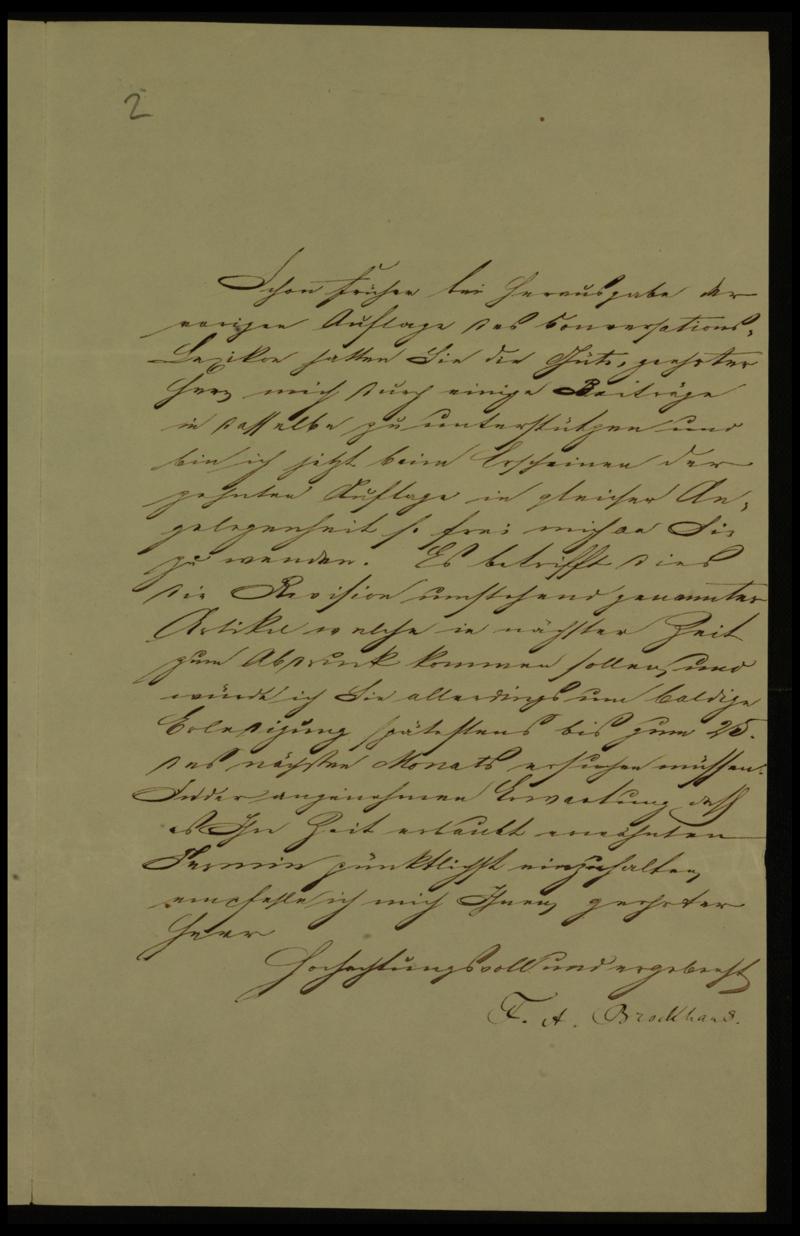 2
Schon früher bei Herausgabe der
vorigen Auflage des Conversations-
Lexikon hatten Sie die Güte, geehrter
Herr, mich durch einige Beiträge
in dasselbe zu unterstützen und
bin ich jetzt beim Erscheinen der
zehnten Auflage in gleicher An-
gelegenheit so frei mich an Sie
zu wenden. Es betrifft dies
die Revision umstehend genannter
Artikel welche in nächster Zeit
zum Abdruck kommen sollen, und
würde ich Sie allerdings um baldige
Erledigung spätestens bis zum 25.
des nächsten Monats ersuchen müssen.
In der angenehmen Erwartung daß
es Ihre Zeit erlaubt erwähnten
Termin pünktlichst einzuhalten,
empfehle ich mich Ihnen, geehrter
Herr
Hochachtungsvoll und ergebenst
F. A. Brockhaus.